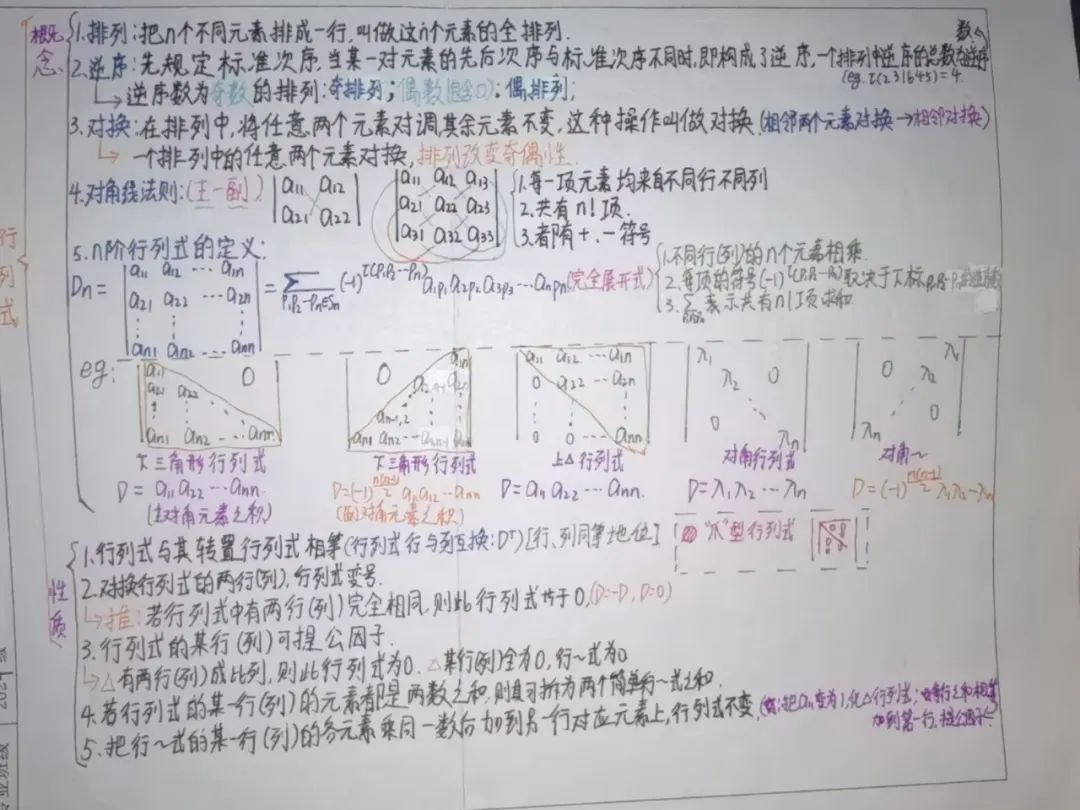 概念
1.排列:把n个不同元素排成一行,叫做这n个元素的全排列.
2.逆序:先规定标准次序,当某一对元素的先后次序与标准次序不同时,即构成了逆序,一个排列中逆序的总数为逆序数
(eg. τ(231645)=4
逆序数为奇数的排列:奇排列;偶数(包含0):偶排列;
3.对换:在排列中,将任意两个元素对调,其余元素不变,这种操作叫做对换.(相邻两个元素对换→相邻对换)
一个排列中的任意两个元素对换,排列改变奇偶性.
4.对角线法则:(主-副)
a11 a12
a21 a22
a11 a12 a13
a21 a22 a23
a31 a32 a33
1.每一项元素均来自不同行不同列
2.共有n!项.
3.都有+、-符号
行列式
5.n阶行列式的定义:
Dn=
a11 a12 ⋯ a1n
a21 a22 ⋯ a2n
an1 an2 ⋯ ann
=∑ (-1)^τ(P1P2⋯Pn) a1p1 a2p2 a3p3⋯anpn(完全展开式)
P1P2⋯Pn∈Sn
1.不同行(列)的n个元素相乘.
2.每项的符号(-1)^τ(P1P2⋯Pn)取决于下标P1P2⋯Pn
3.∑表示共有n!项求和.
eg:
a11 0
a21 a22
an1 an2 ⋯ ann
下三角形行列式
D=a11a22⋯ann.
(主对角元素之积)
0 a1n
a2,n-1 a2n
an-1,2
an1 an2⋯ an,n-1 ann
下三角形行列式
D=(-1)^n(n-1)/2 a11a12⋯ann
(副对角元素之积)
a11 a12 ⋯ a1n
0 a22 ⋯ a2n
0 0 ⋯ ann
上△行列式
D=a11a22⋯ann.
λ1
λ2 0
0 λn
对角行列式
D=λ1λ2⋯λn
λ1
0 λ2
λn 0
对角~
D=(-1)^n(n-1)/2 λ1λ2⋯λn
性质
1.行列式与其转置行列式相等(行列式行与列互换:Dᵀ)[行、列同等地位]
“爪”型行列式
2.对换行列式的两行(列),行列式变号.
推:若行列式中有两行(列)完全相同,则此行列式等于0,(D=-D,D=0)
3.行列式的某行(列)可提公因子.
△有两行(列)成比列,则此行列式为0. △某行(列)全为0,行~式为0
4.若行列式的某一行(列)的元素都是两数之和,则其可拆为两个简单行~式之和.
5.把行~式的某一行(列)的各元素乘同一数后加到另一行对应元素上,行列式不变.(把a11变为1,化△行列式;每行之和相等
加到第一行,提公因子)
专业班级